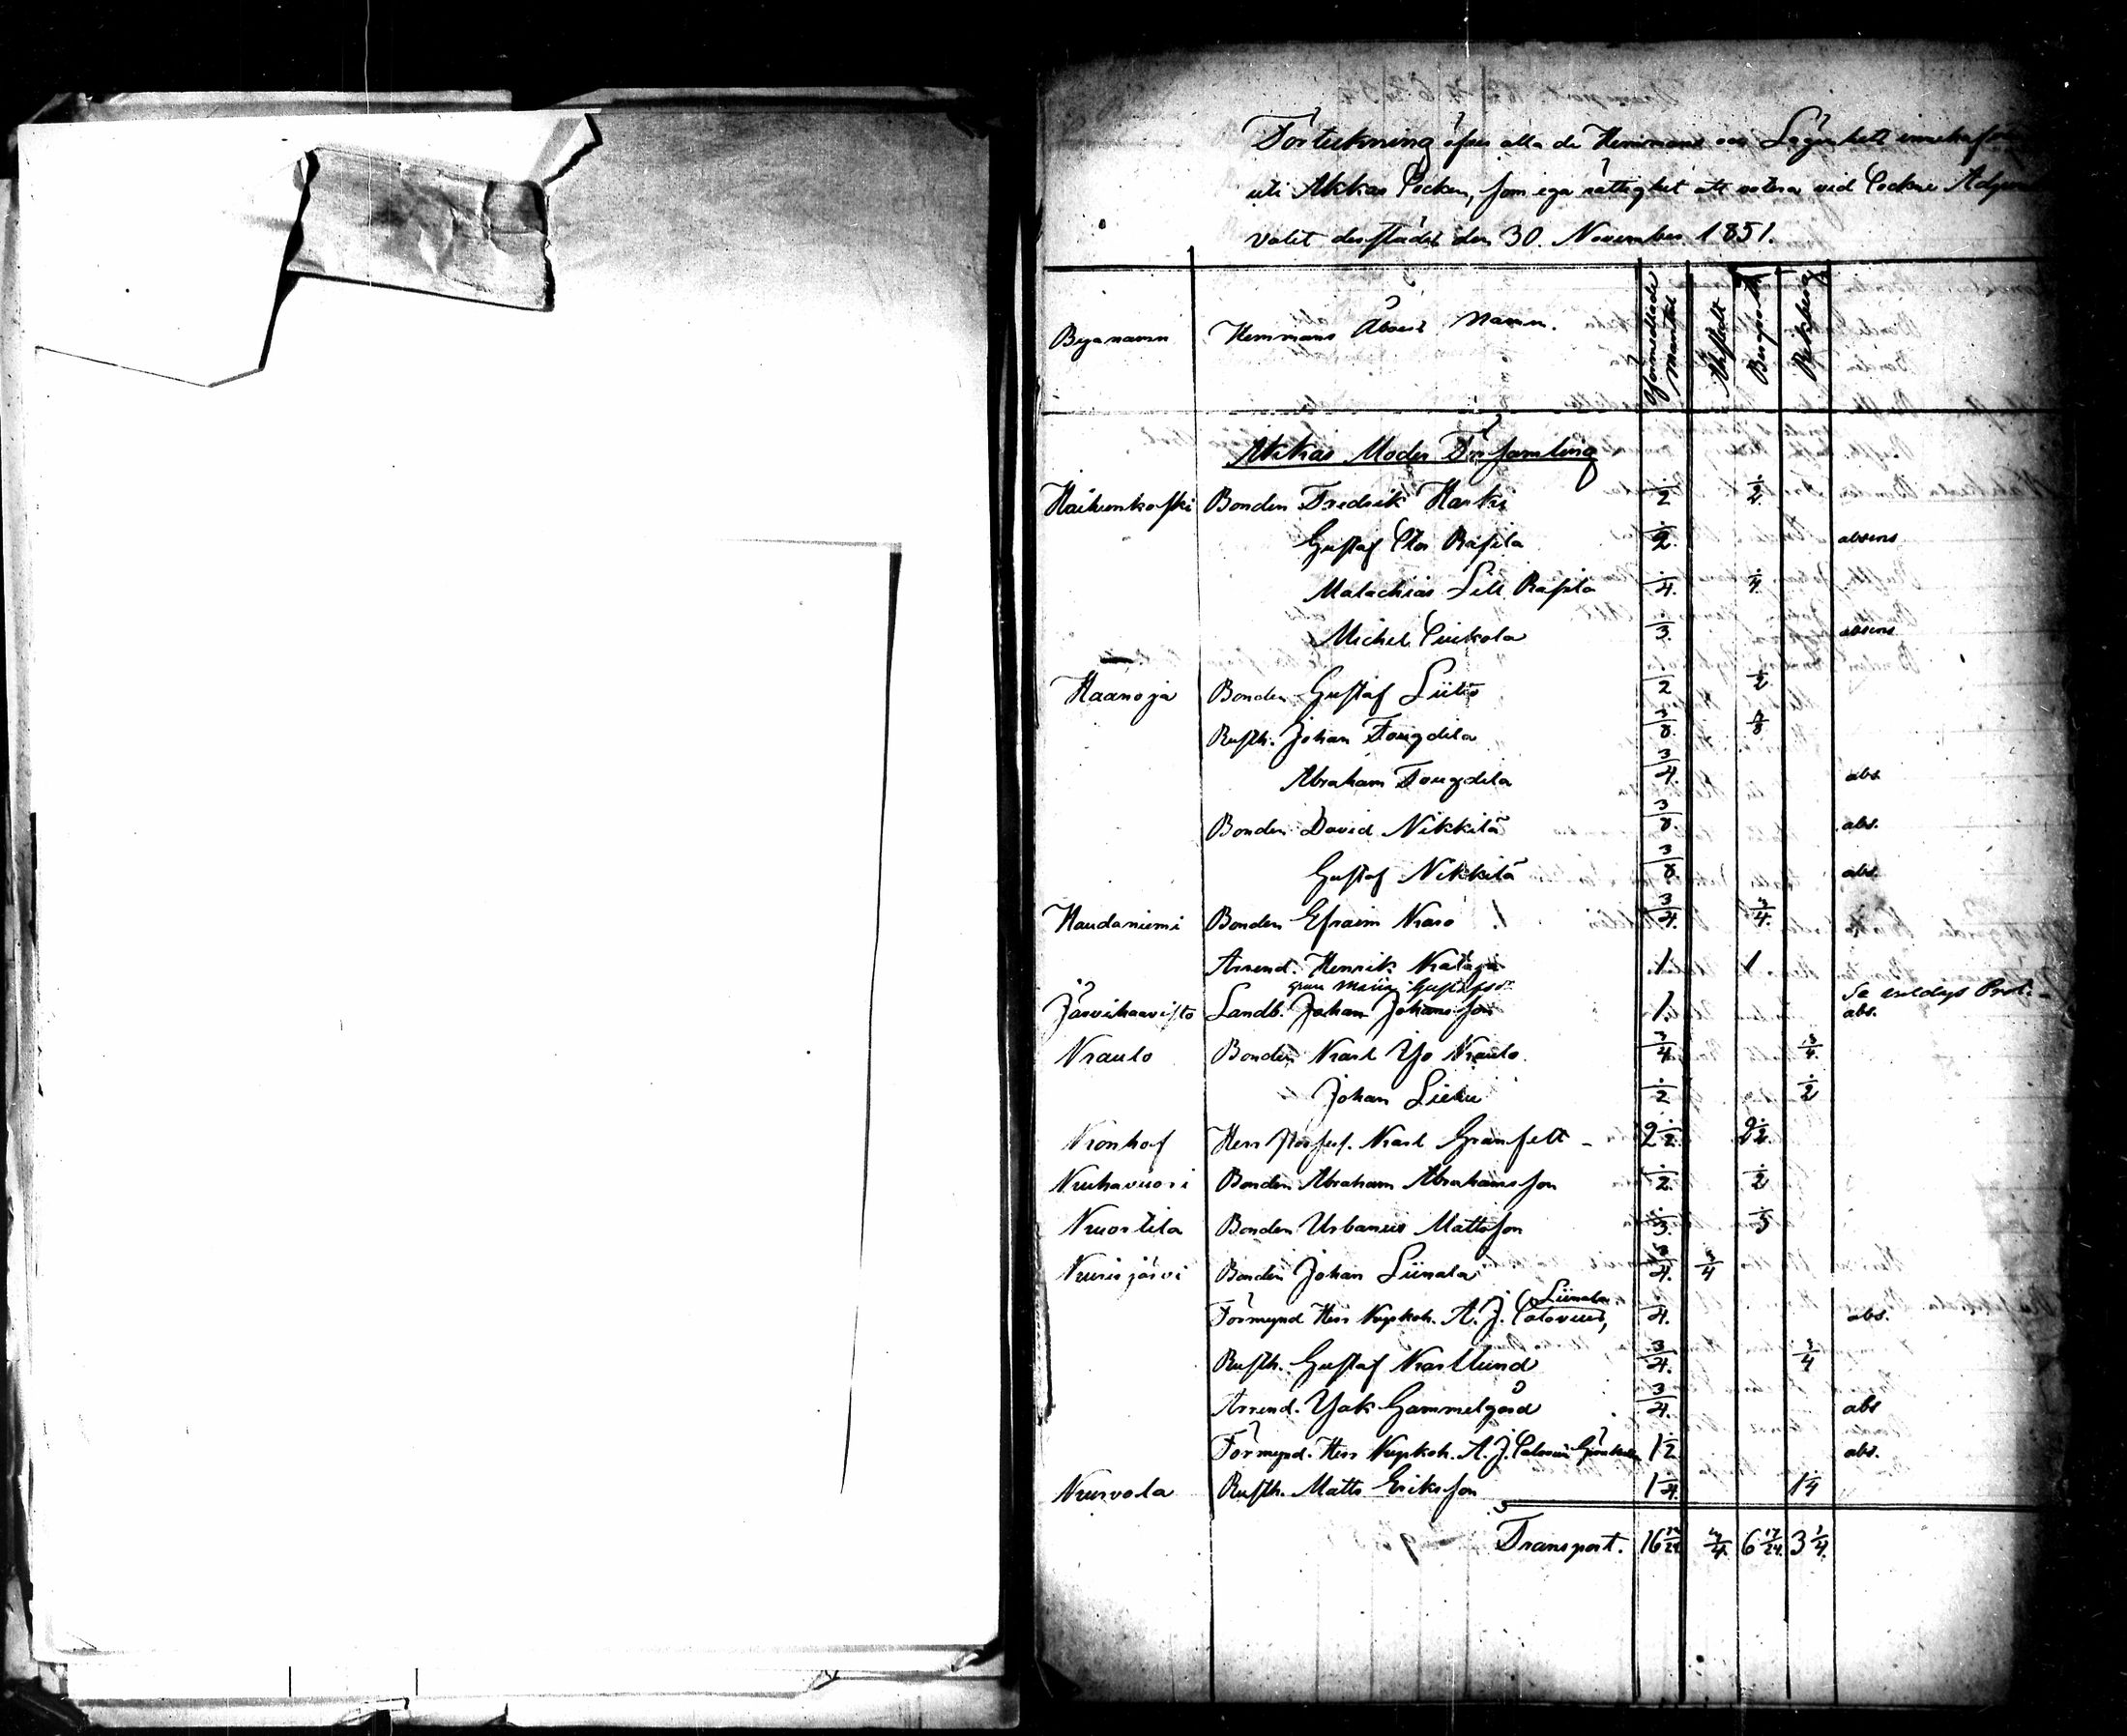 Förteckning öfver alla de Hemmans och Lägenhets innehafvare
uti Akkas Socken, som ega rättighet att votera vid Sockne Adjunkts
valet derstädes den 30 November 1851.
Byanamn Hemmans Åboers Namn. Oförmedlade Mantal Bergroth
Akkas Moder Församling
Haihunkoski Bonden Fredrik Hartis 1/2 1/2
Gustaf Stor Rasila 1/2 absens
Malachias Lill Rasila 1/4 1/4
Michel Siukola 1/3 absens
Haanoja Bonden Gustaf Liuto 1/2 1/2
Rusth. Johan Fougdila 3/8 3/8
Abraham Fougdila 3/4 abs
Bonden David Nikkilä 3/8 abs.
Gustaf Nikkilä 3/8 abs.
Haudaniemi Bonden Efraim Karo 3/4 3/4
Arrend. Henrik Krataja 1 1
Gustafsdr
Järvihaavisto Landb. Johan Johansson 1 abs.
Kraulo Bonden Karl Yso Kraulo 3/4 3/4
Johan Lieku 1/2 1/2
Kronhof Herr Karl Granfelt 2 1/2 2 1/2
Kruhavuori Bonden Abraham Abrahamsson 1/2 1/2
Kruortila Bonden Urbanus Mattsson 1/3 1/3
Kurisjärvi Bonden Johan Liunala 3/4 3/4
Liunala
Förmynd Herr Kapkoh. A. J. Calovius, 1/4 abs.
Rusth. Gustaf Karllund 3/4 3/4
Arrend. Isak Gammelgård 3/4 abs
Förmynd. Herr Kapkoh. A. J. Calovius 1 1/2 abs.
Kurvola Rusth. Matts Eriksson 1 1/4 1 1/4
Transport. 16 3/4 6 17/24 3 1/4